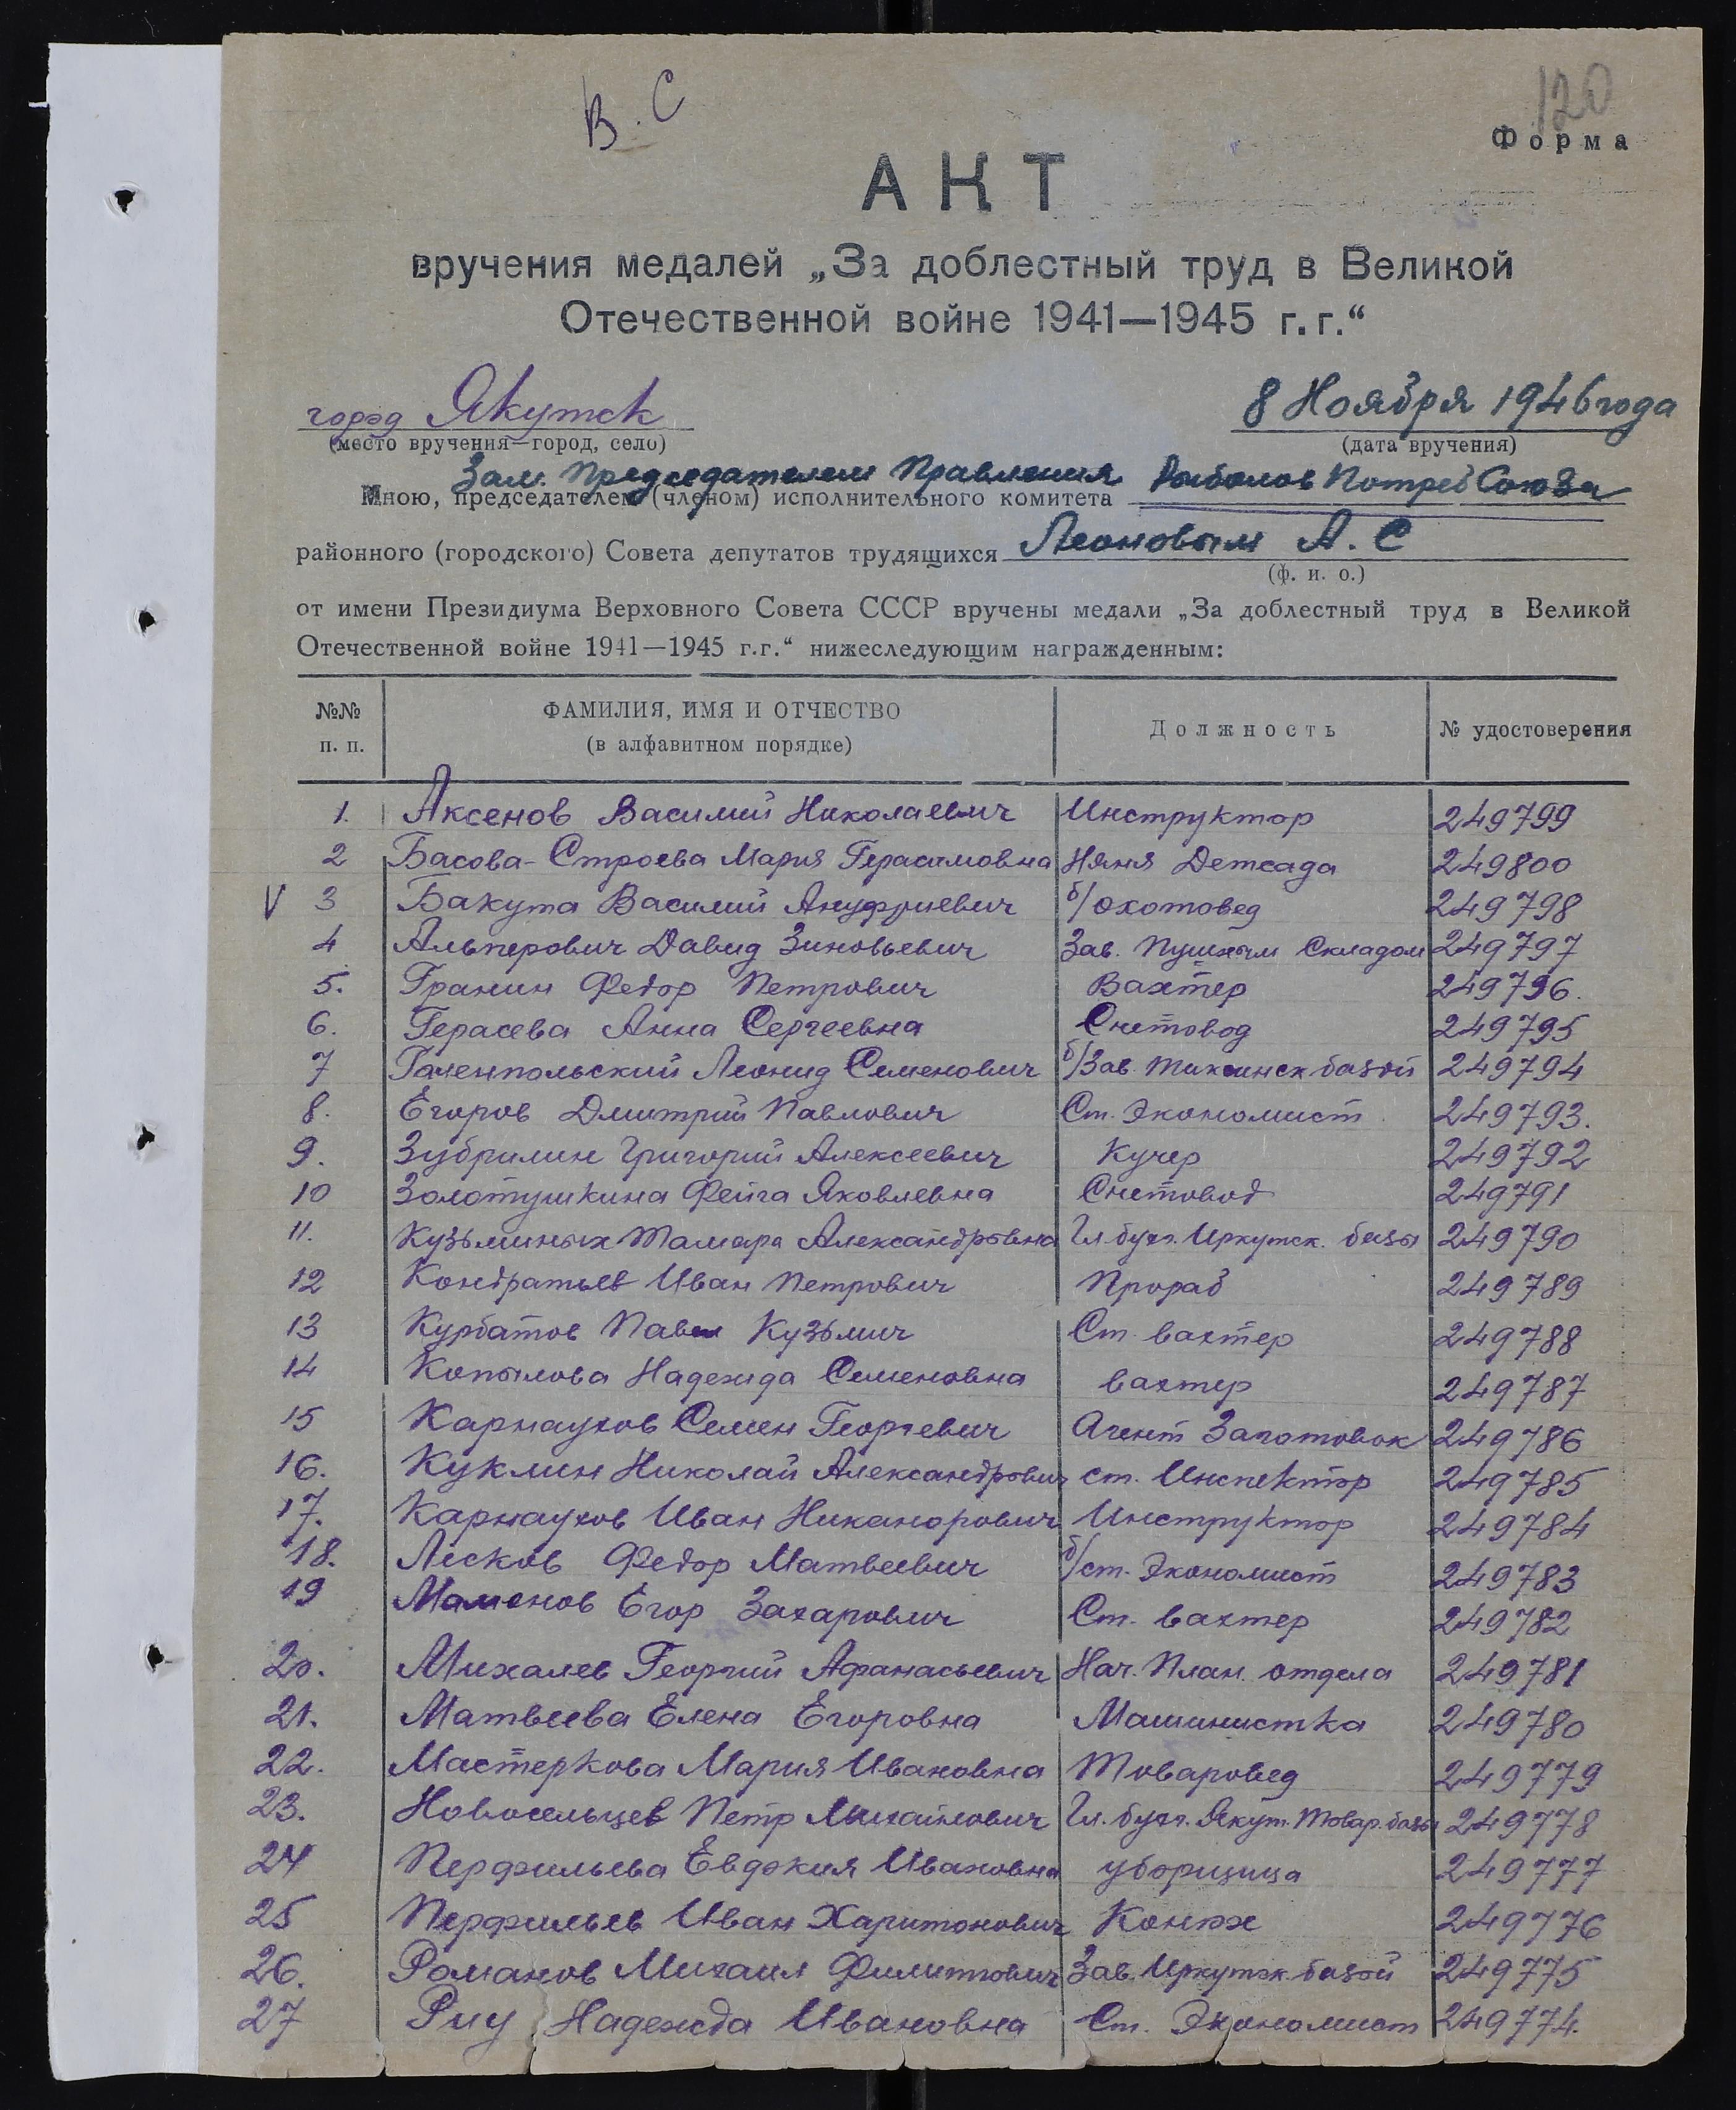 В. С
120
Форма
АКТ
вручения медалей „За доблестный труд в Великой
Отечественной войне 1941—1945 г.г.“
город Якутск
8 Ноября 1946 года
(место вручения—город, село)
(дата вручения)
Зам. Председателем Правления Рыболов Потреб Союза
Мною, председателем (членом) исполнительного комитета
районного (городского) Совета депутатов трудящихся Леоновым А. С
(ф. и. о.)
от имени Президиума Верховного Совета СССР вручены медали „За доблестный труд в Великой
Отечественной войне 1941—1945 г.г.“ нижеследующим награжденным:
№№ п. п. ФАМИЛИЯ, ИМЯ И ОТЧЕСТВО (в алфавитном порядке) Должность № удостоверения
1. Аксенов Василий Николаевич Инструктор 249799
2 Басова-Строева Мария Герасимовна Няня Детсада 249800
V 3 Бакута Василий Ануфриевич б/охотовед 249798
4 Альперович Давид Зиновьевич Зав. Пушным Складом 249797
5. Гранин Федор Петрович Вахтер 249796.
6. Герасева Анна Сергеевна Счетовод 249795
7 Галенпольский Леонид Семенович б/Зав. Тиксинск базой 249794
8. Егоров Дмитрий Павлович Ст. Экономист 249793.
9. Зубрилин Григорий Алексеевич Кучер 249792
10 Золотушкина Фейга Яковлевна Счетовод 249791
11. Кузьминых Тамара Александровна Гл. бухг. Иркутск. базы 249790
12 Кондратьев Иван Петрович Прораб 249789
13 Курбатов Павел Кузьмич Ст. вахтер 249788
14 Копылова Надежда Семеновна вахтер 249787
15 Карнаухов Семен Георгевич Агент Заготовок 249786
16. Куклин Николай Александрович ст. Инспектор 249785
17. Карнаухов Иван Никанорович Инструктор 249784
18. Лесков Федор Матвеевич б/ст. Экономист 249783
19 Маменов Егор Захарович Ст. вахтер 249782
20. Михалев Георгий Афанасьевич Нач. План. отдела 249781
21. Матвеева Елена Егоровна Машинистка 249780
22. Мастеркова Мария Ивановна Товаровед 249779
23. Новосельцев Петр Михайлович Гл. бухг. Якут. Товар. базы 249778
24 Перфильева Евдокия Ивановна уборщица 249777
25 Перфильев Иван Харитонович Конюх 249776
26. Романов Михаил Филиппович Зав. Иркутск. базой 249775
27 Риу Надежда Ивановна Ст. Экономист 249774.